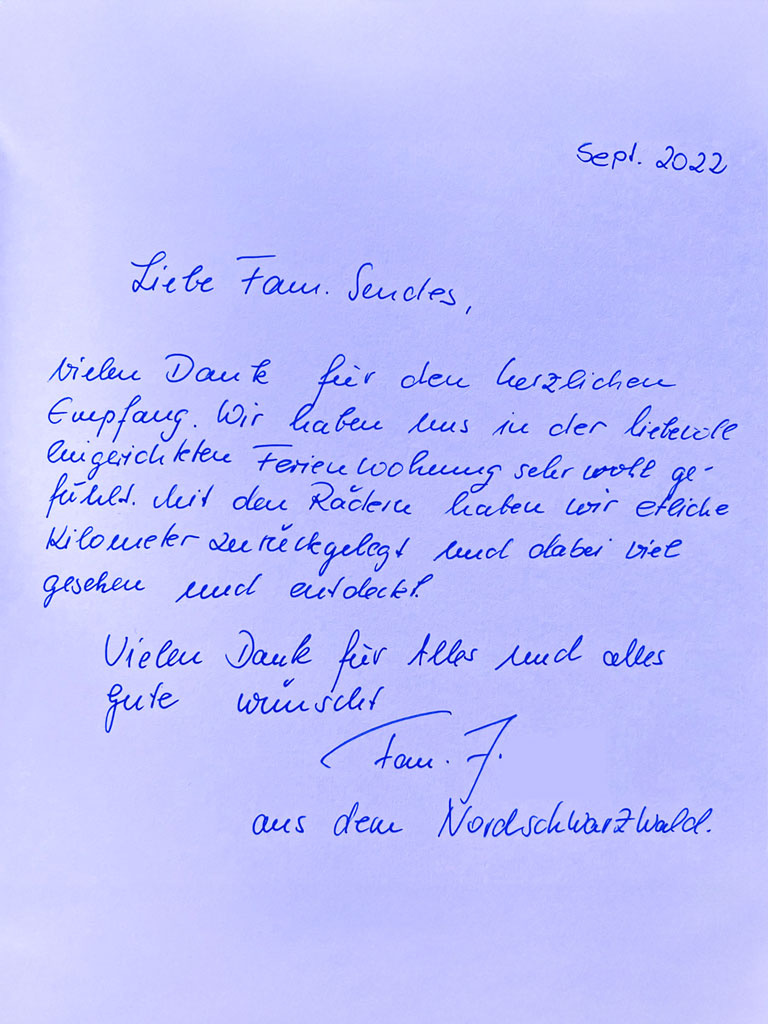 Sept. 2022
Liebe Fam. Sendes,
vielen Dank für den herzlichen
Empfang. Wir haben uns in der liebevoll
eingerichteten Ferienwohnung sehr wohl ge-
fühlt. Mit den Rädern haben wir etliche
Kilometer zurückgelegt und dabei viel
gesehen und entdeckt.
Vielen Dank für Alles und alles
Gute wünscht
Fam. J.
aus dem Nordschwarzwald.